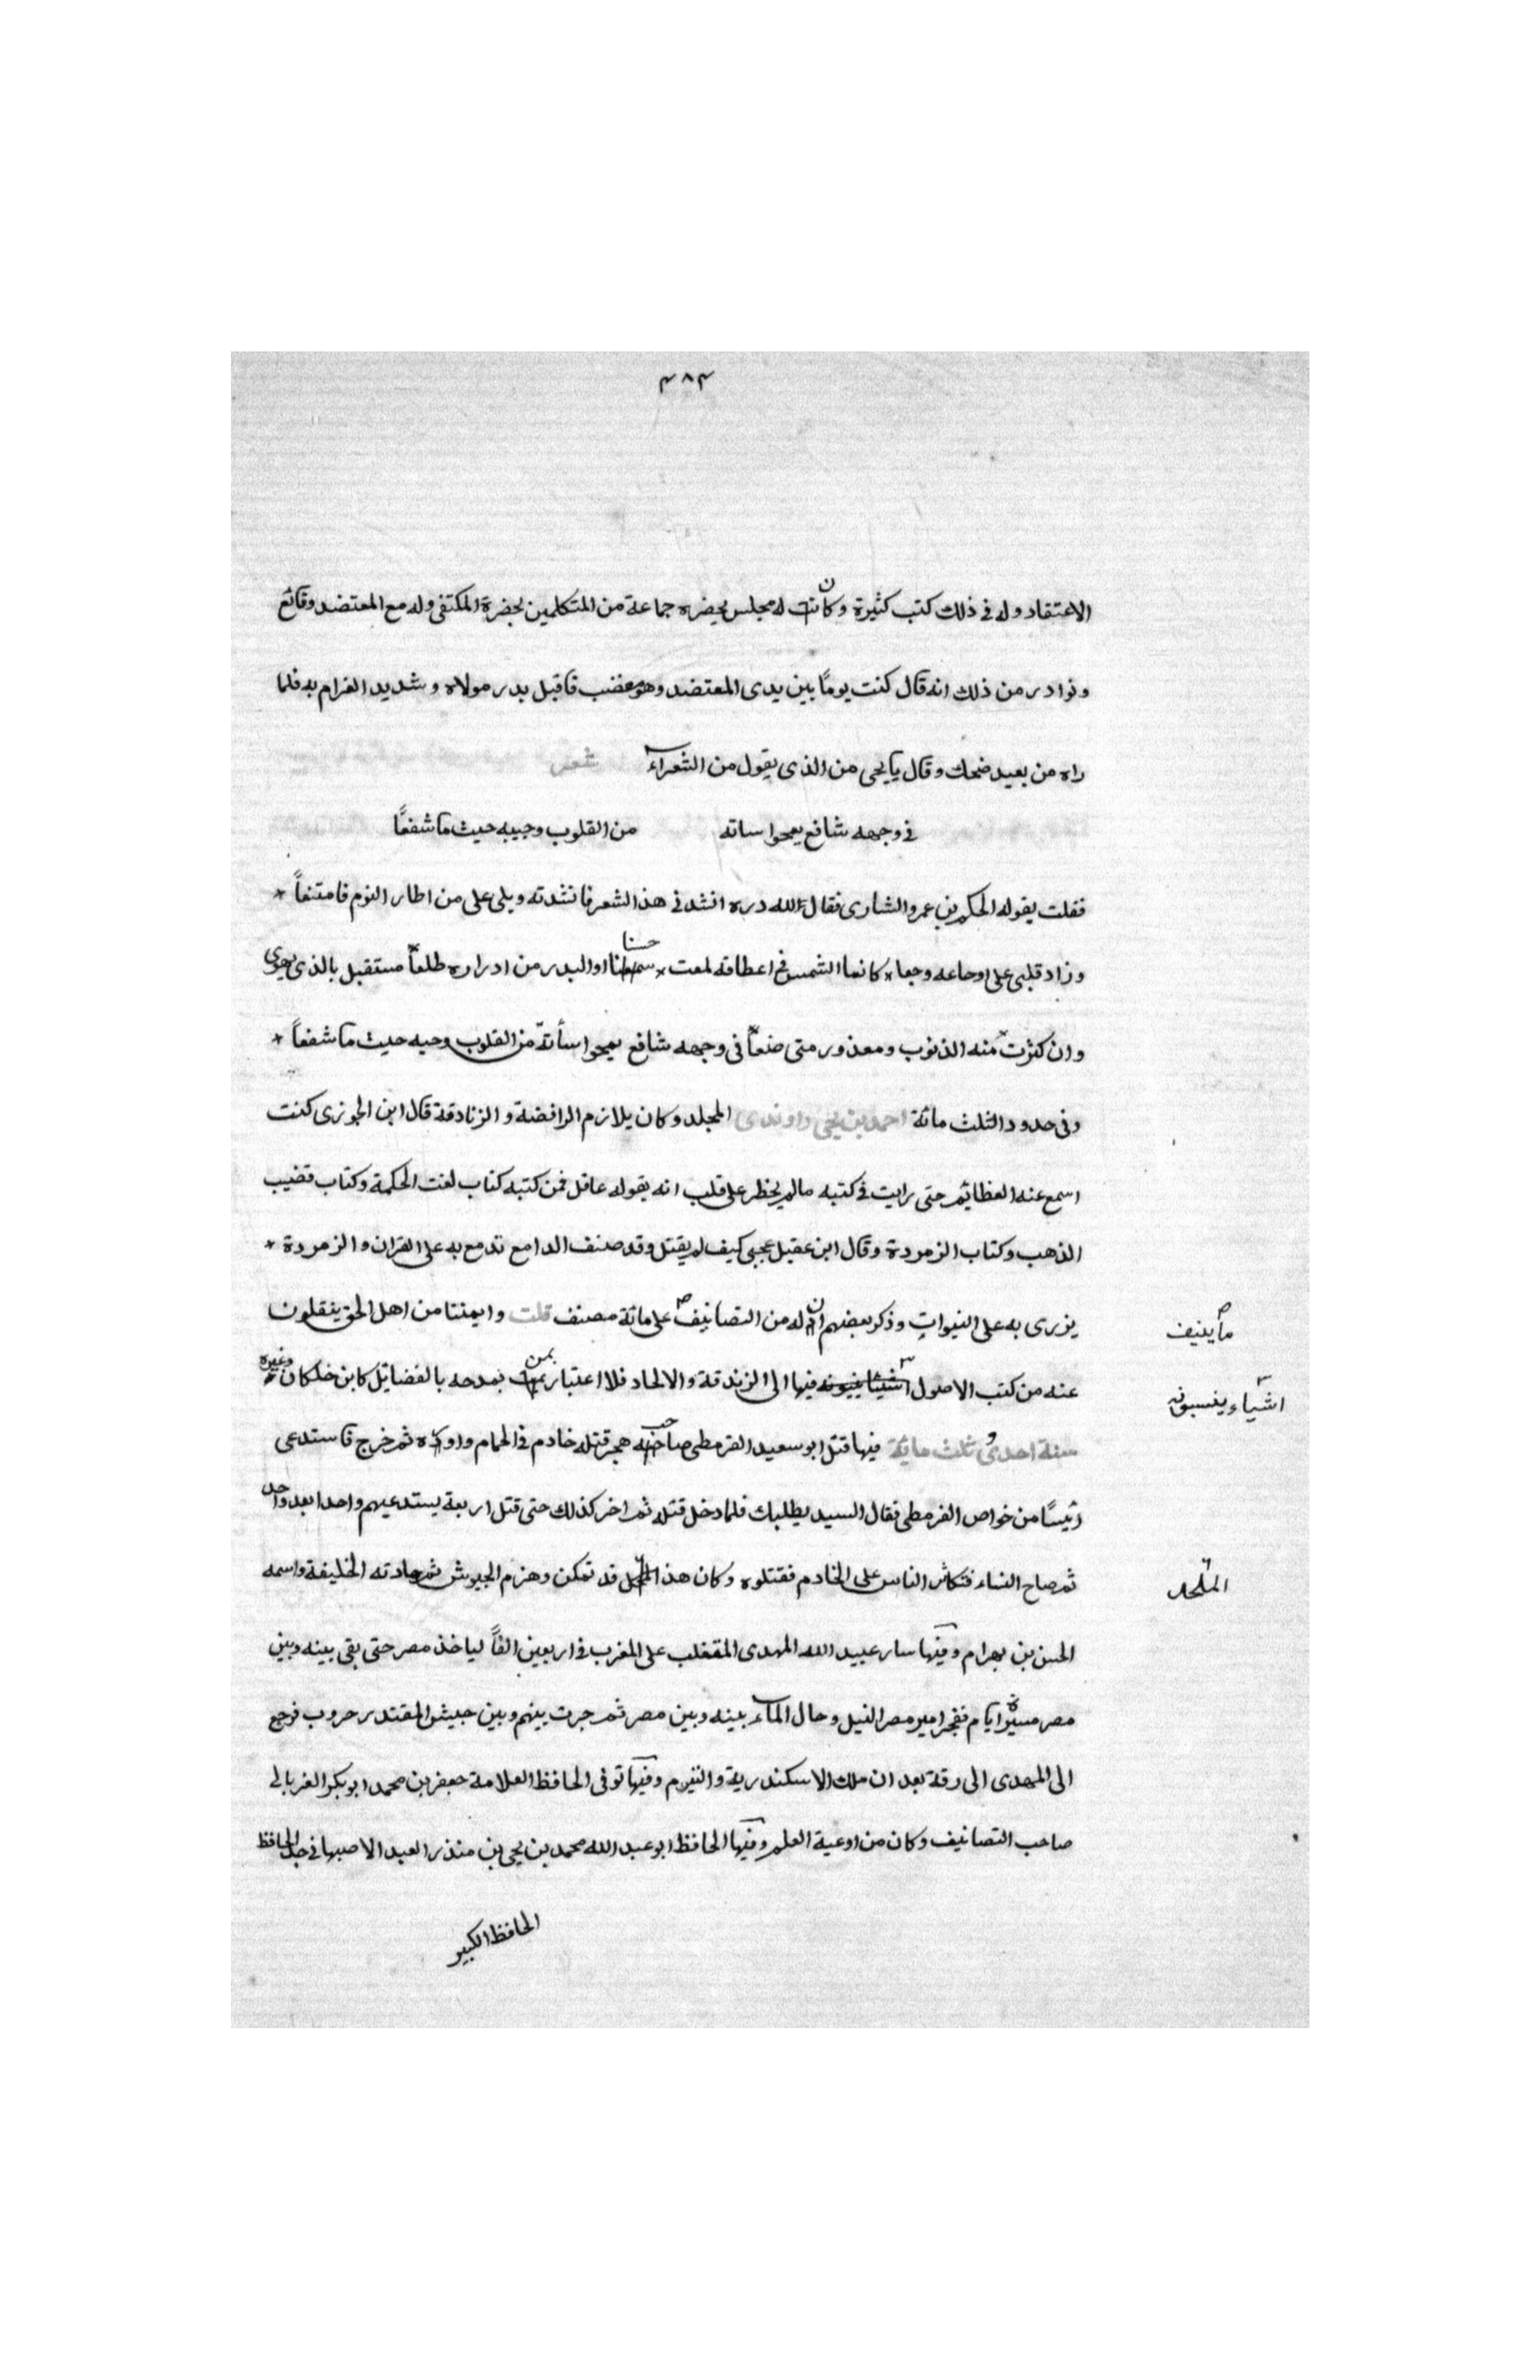 ٣٨٣
الاعتقاد وله فى ذلك كتب كثيرة وكان له مجلس يحضره جماعة من المتكلمين بحضرة المكتفى وله مع المعتضد وقائع
ونوادر من ذلك انه قال كنت يوماً بين يدى المعتضد وهو مغضب فاقبل بدر مولاه وشديد الغرام به فلما
راه من بعيد ضحك وقال يا يحيى من الذى يقول من الشعراء شعر
فى وجهه شافع يمحوا ساته من القلوب وجيبه حيث ما شفعاً
فقلت يقوله الحكم بن عمرو الشارى فقال لله دره انشدنى هذا الشعر فانشدته ويلى على من اطار النوم فامتنعاً *
وزاد قلبى على اوجاعه وجعا * كانما الشمس فى اعطافه لمعت * حسنا او البدر من ادراره طلعاً مستقبل بالذى يهوى
وان كثرت منه الذنوب ومعذور متى صنعاً فى وجهه شافع يمحوا سأته من القلوب وجيه حيث ما شفعاً *
وفى حدود الثلث مائة احمد بن يحيى راوندى المجلد وكان يلازم الرافضة والزنادقة قال ابن الجوزى كنت
اسمع عنه العظايم حتى رايت فى كتبه مالم يخطر على قلب انه يقوله عاقل فمن كتبه كتاب لغت الحكمة وكتاب قضيب
الذهب وكتاب الزمردة وقال ابن عقيل عجبى كيف لم يقتل وقد صنف الدامع تدمع به على القران والزمردة *
يزرى به على النبوات وذكر بعضهم ان له من التصانيف على مائة مصنف قلت وايمنتا من اهل الحق ينقلون
ما ينيف
عنه من كتب الاصول فيها الى الزندقة والالحاد فلا اعتبار بمن بمدحه بالفضايل كابن خلكان وغيره
اشياء ينسبونه
سنة احدى وثلث مائة فيها قتل ابو سعيد القرمطى صاحب هجر قتله خادم فى الحمام ثم خرج فاستدعى
رئيسًا من خواص القرمطى فقال السيد يطلبك فلما دخل قتله ثم اخر كذلك حتى قتل اربعة يستدعيهم واحدا بعد واحد
ثم صاح النساء فتكاثر الناس على الخادم فقتلوه وكان هذا قد تمكن وهزم الجيوش ثم هادته الخليفة واسمه
الملحد
الحسن بن بهرام وفيها سار عبيد الله المهدى المتغلب على المغرب فى اربعين الفاً لياخذ مصر حتى بقى بينه وبين
مصر مسيرة ايام ففجر امير مصر النيل وحال الماء بينه وبين مصر ثم جرت بينهم وبين جيش المقتدر حروب فرجع
الى المهدى الى رقة بعد ان ملك الاسكندرية والفيوم وفيها توفى الحافظ العلامة جعفر بن محمد ابوبكر الغربالى
صاحب التصانيف وكان من اوعية العلم وفيها الحافظ ابو عبد الله محمد بن يحيى بن منذر العبد الاصبهانى جد الحافظ
الحافظ الكبير